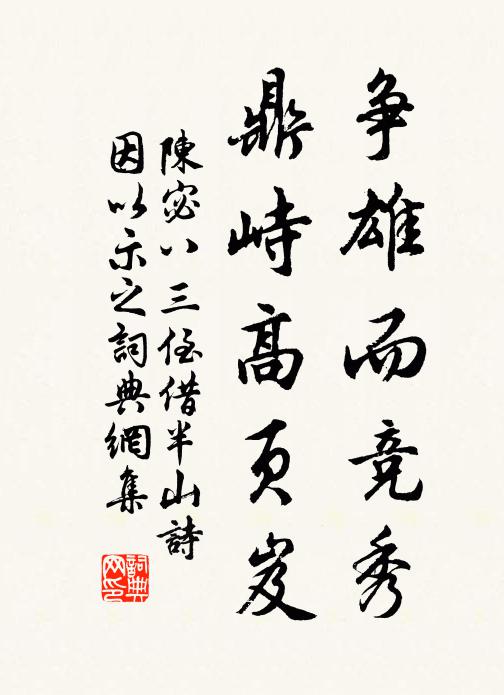 争雄而竞秀
鼎峙高页岌
陳宓八三侄借半山詩
因以示之詞典網集
詞典网印